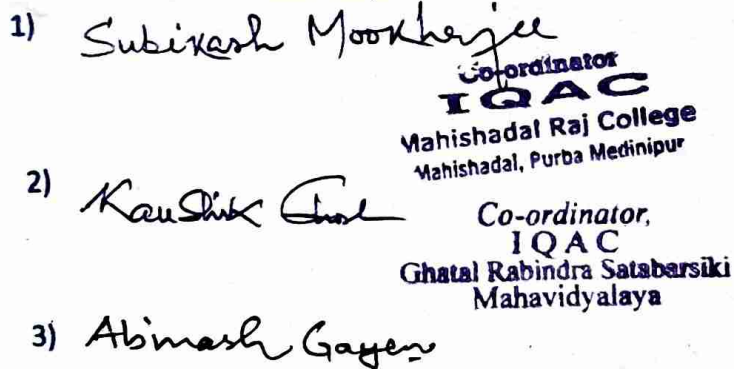 1) Subikash Mookherjee
Co-ordinator
I Q A C
Mahishadal Raj College
Mahishadal, Purba Medinipur
2) Kaushik Ghosh
Co-ordinator,
I Q A C
Ghatal Rabindra Satabarsiki
Mahavidyalaya
3) Abinash Gayen